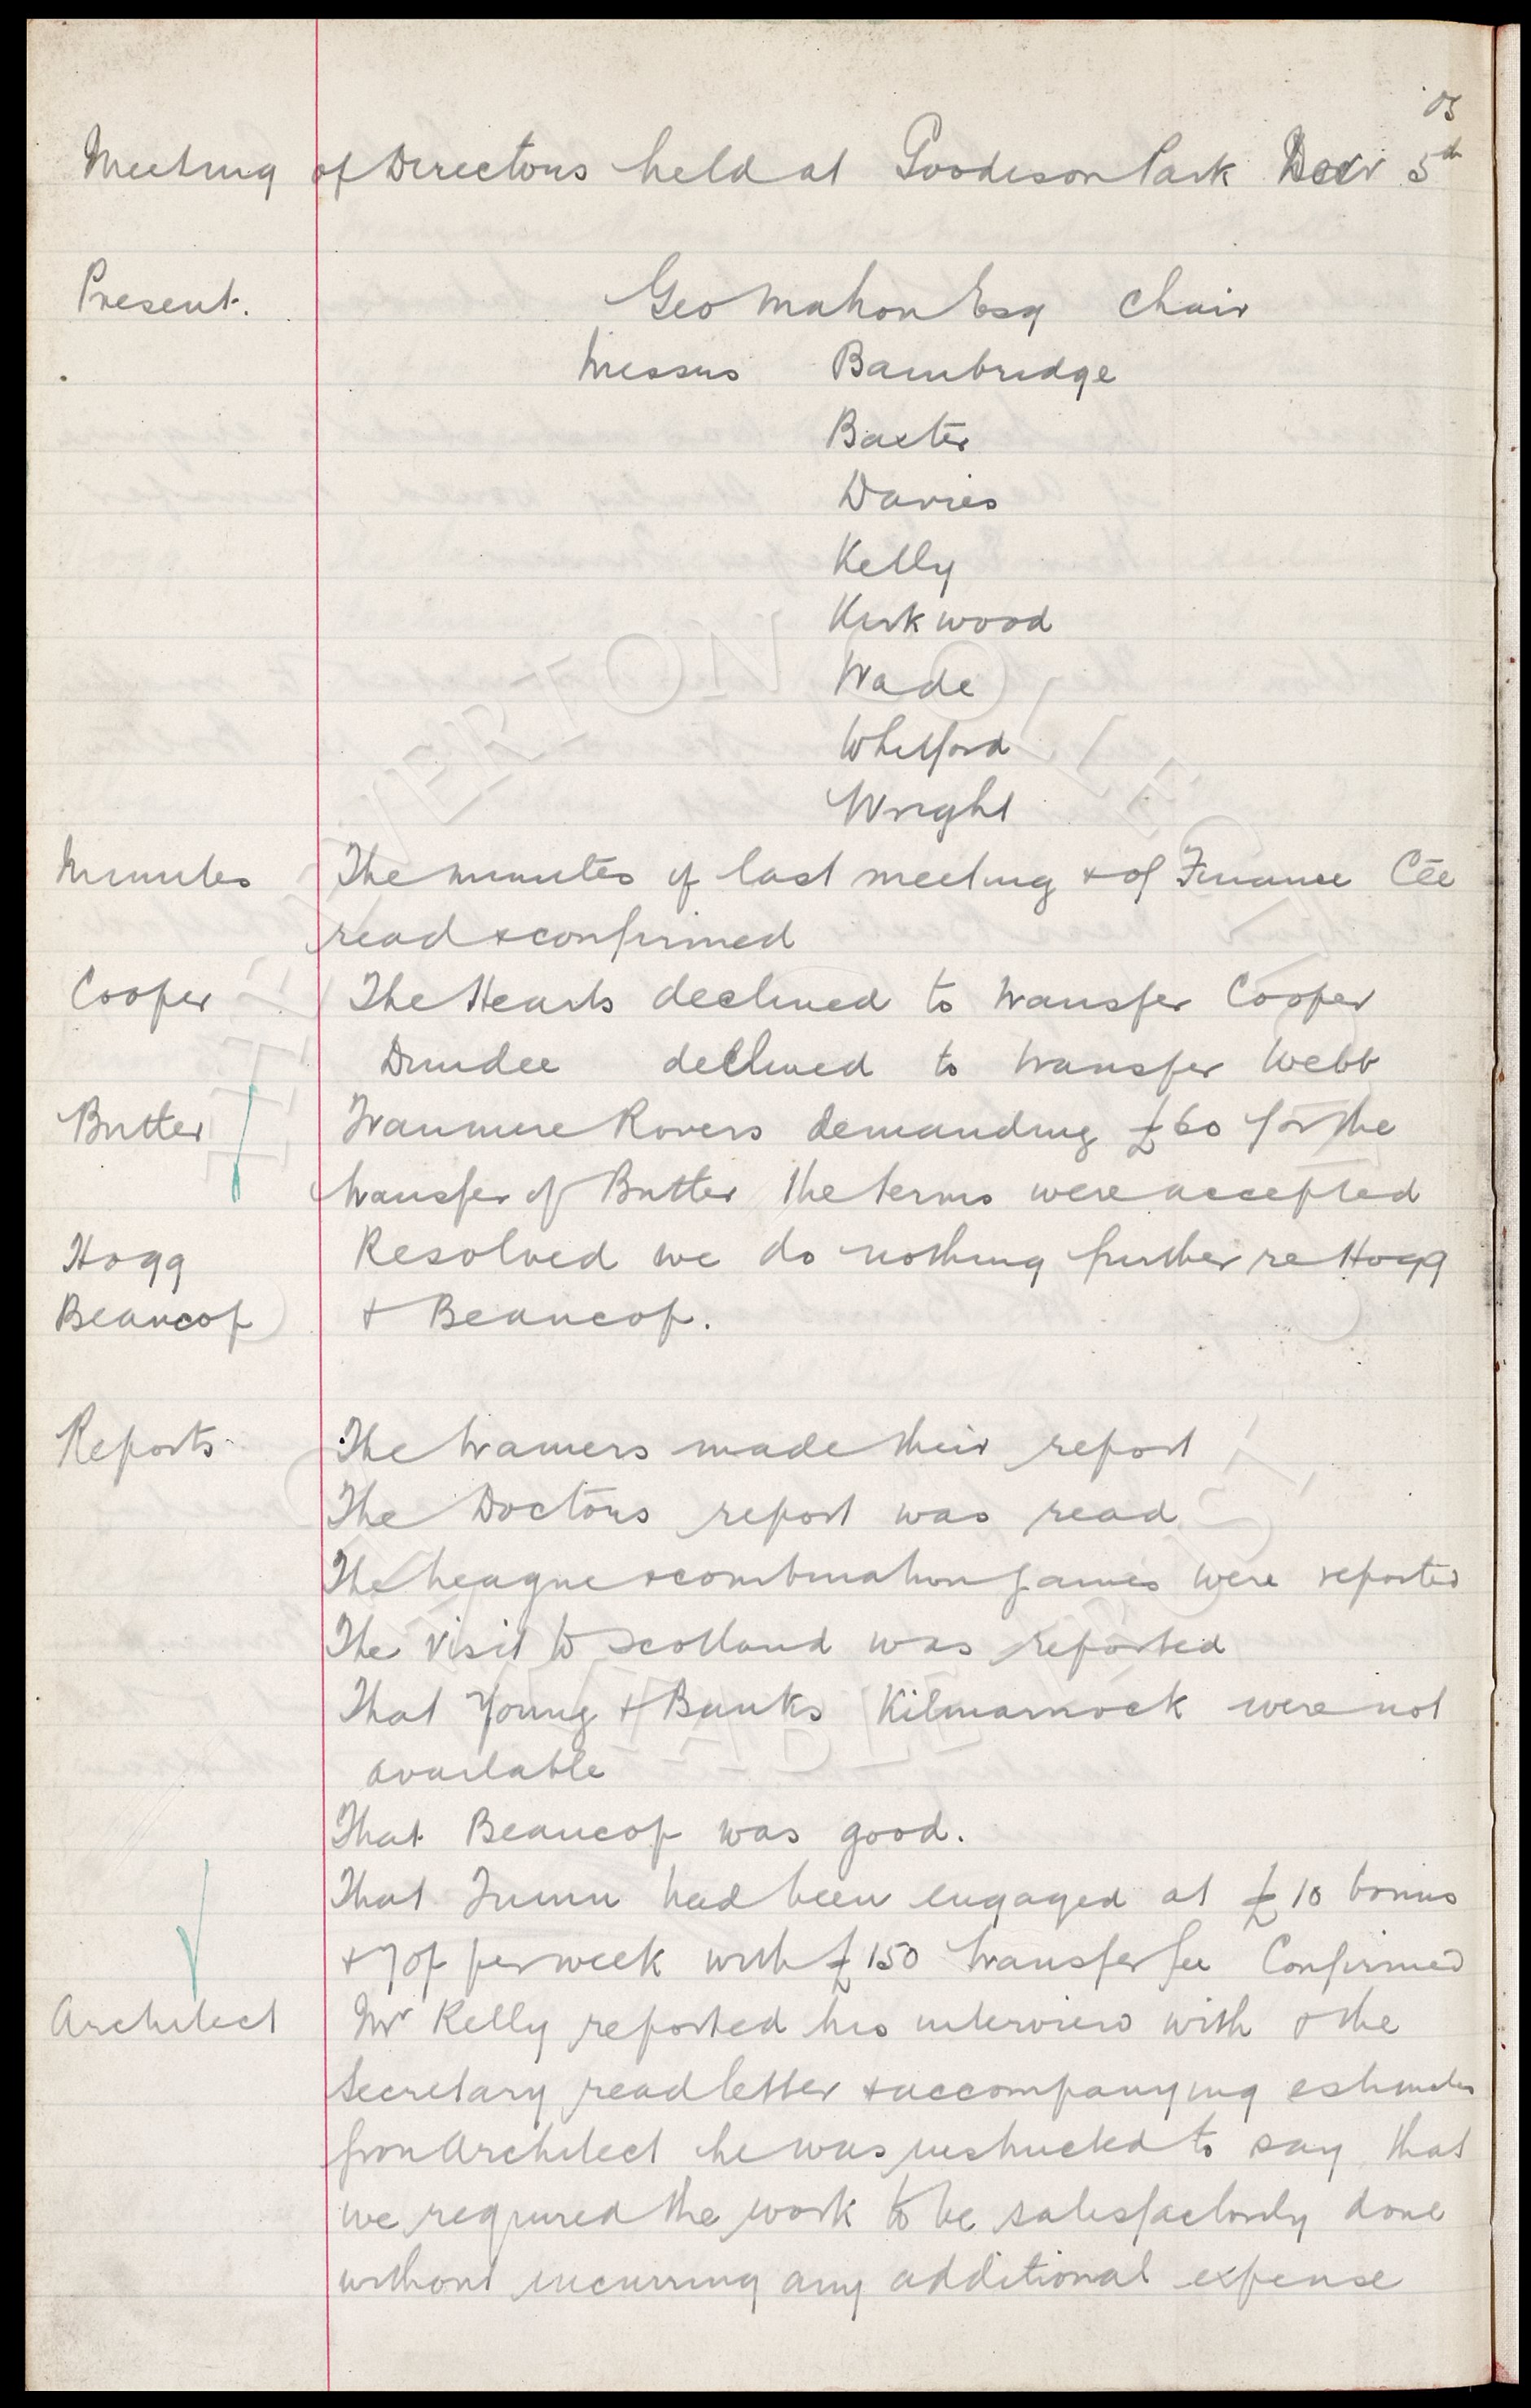 '05
Meeting of Directors held at Goodison Park Decr 5th
Present. Geo Mahon Esq Chair
Messrs Bainbridge
Baxter
Davies
Kelly
Kirkwood
Wade
Whitford
Wright
Minutes The minutes of last meeting & of Finance Cee
read & confirmed
Cooper The Hearts declined to transfer Cooper
Dundee declined to transfer Webb
Butler Tranmere Rovers demanding £60 for the
transfer of Butler the terms were accepted
Hogg Resolved we do nothing further re Hogg
Beancop & Beancop.
Reports The trainers made their report
The Doctors report was read
The League & combination games were reported
The visit to Scotland was reported
That Young & Banks Kilmarnock were not
available
That Beancop was good.
That had been engaged at £10 bonus
& 70/ per week with £150 transfer fee Confirmed
Architect Mr Kelly reported his interview with & the
Secretary read letter & accompanying estimates
from Architect he was instructed to say that
we required the work to be satisfactorily done
without incurring any additional expense
EVERTON COLLECTION
CHARITABLE TRUST